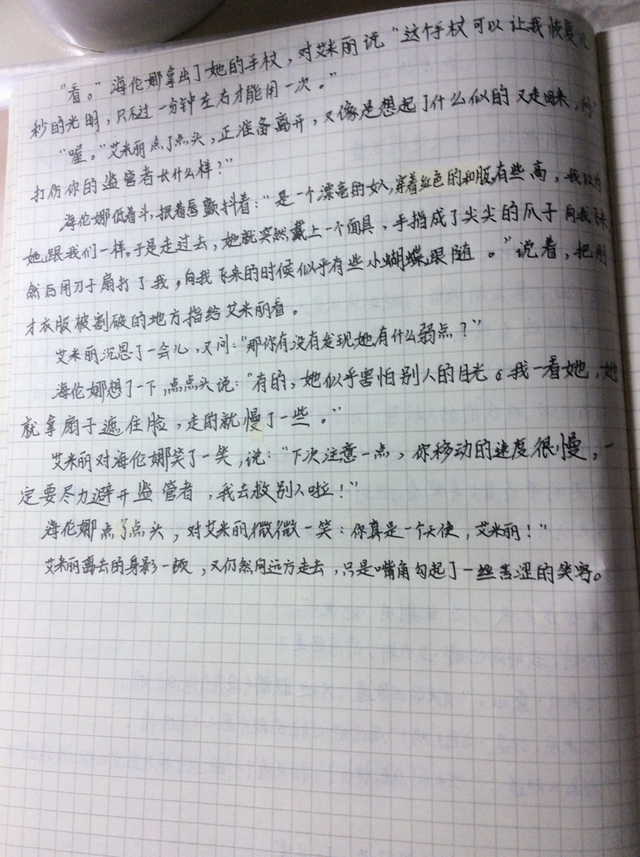 “看。”海伦娜拿出了她的手杖，对艾米丽说“这个手杖可以让我恢复
秒的光明，只不过一分钟左右才能用一次。”
“喔。”艾米丽点了点头，正准备离开，又像是想起了什么似的又走回来，
打伤你的监管者长什么样？”
海伦娜低着头，抿着唇颤抖着：“是一个漂亮的女人，穿着红色的和服，有些高，我以为
她跟我们一样。于是走过去，她就突然戴上一个面具，手指成了尖尖的爪子向我飞来
然后用刀子扇打了我，向我飞来的时候似乎有些小蝴蝶跟随。”说着，把刚
才衣服被割破的地方指给艾米丽看。
艾米丽沉思了一会儿，又问：“那你有没有发现她有什么弱点？”
海伦娜想了一下，点点头说：“有的，她似乎害怕别人的目光。我一看她，她
就拿扇子遮住脸，走的就慢了一些。”
艾米丽对海伦娜笑了一笑，说：“下次注意一点，你移动的速度很慢，一
定要尽力避开监管者，我去救别人啦！”
海伦娜点了点头，对艾米丽微微一笑：你真是一个天使，艾米丽！”
艾米丽离去的身影一顿，又仍然向远方走去，只是嘴角勾起了一丝苦涩的笑容。